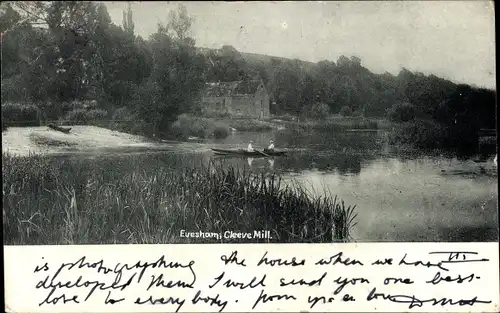 Evesham; Cleeve Mill.
is photographing the house when we have
developed them I will send you one best
love to every body from your